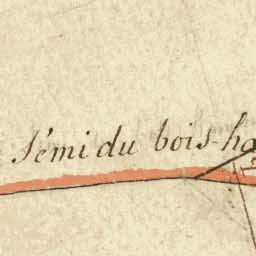 Sémi du bois-ha